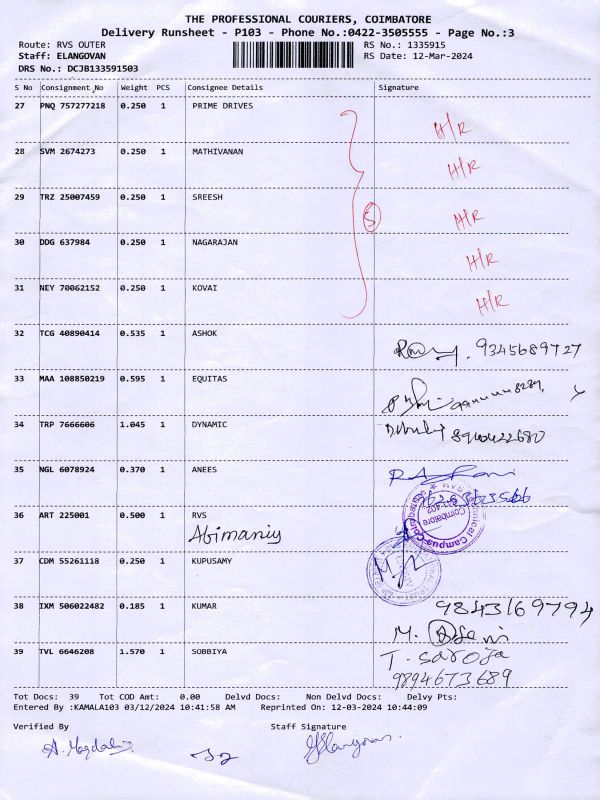 THE PROFESSIONAL COURIERS, COIMBATORE
Delivery Runsheet - P103 - Phone No.:0422-3505555 - Page No.:3
Route: RVS OUTER RS No.: 1335915
Staff: ELANGOVAN RS Date: 12-Mar-2024
DRS No.: DCJB133591503
S No Consignment No Weight PCS Consignee Details Signature
27 PNQ 757277218 0.250 1 PRIME DRIVES H/R
28 SVM 2674273 0.250 1 MATHIVANAN H/R
29 TRZ 25007459 0.250 1 SREESH H/R
5
30 DDG 637984 0.250 1 NAGARAJAN H/R
31 NEY 70062152 0.250 1 KOVAI H/R
32 TCG 40890414 0.535 1 ASHOK 9345689727
33 MAA 108850219 0.595 1 EQUITAS
34 TRP 7666606 1.045 1 DYNAMIC
35 NGL 6078924 0.370 1 ANEES
36 ART 225001 0.500 1 RVS
Abimaniy
37 CDM 55261118 0.250 1 KUPUSAMY
38 IXM 506022482 0.185 1 KUMAR 9843169794
39 TVL 6646208 1.570 1 SOBBIYA T. Saroja
9894673689
Tot Docs: 39 Tot COD Amt: 0.00 Delvd Docs: Non Delvd Docs: Delvy Pts:
Entered By :KAMALA103 03/12/2024 10:41:58 AM Reprinted On: 12-03-2024 10:44:09
Verified By Staff Signature